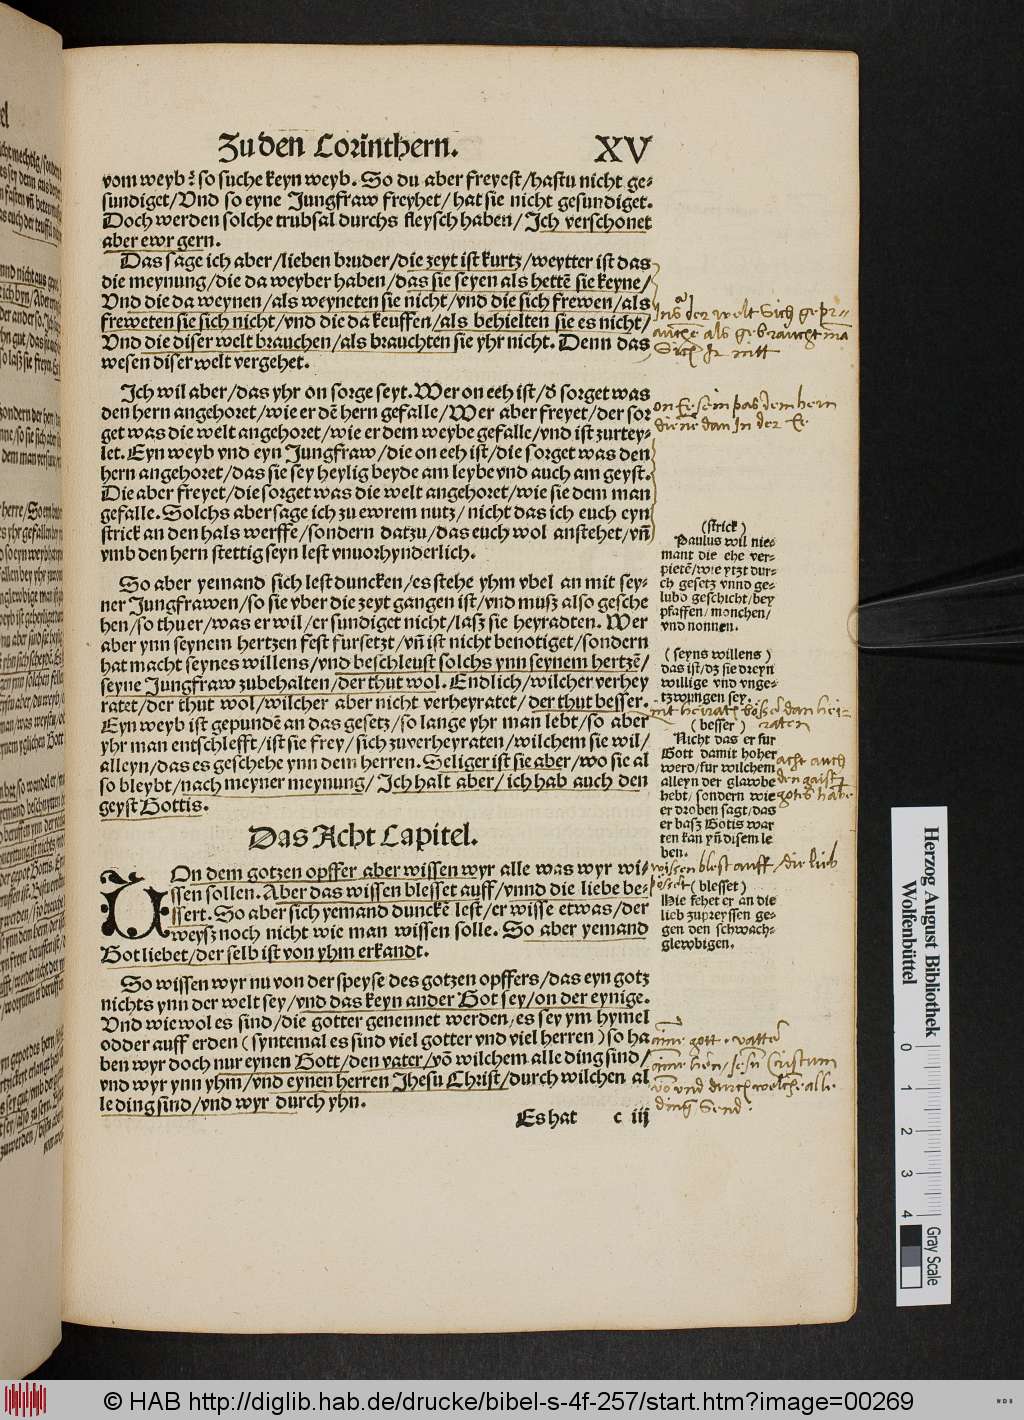 Zu den Corinthern. XV
vom weyb? so suche keyn weyb. So du aber freyest/hastu nicht ge-
sundiget/Vnd so eyne Jungfraw freyhet/hat sie nicht gesundiget.
Doch werden solche trubsal durchs fleysch haben/Jch verschonet
aber ewr gern.
Das sage ich aber/lieben bruder/die zeyt ist kurtz/weytter ist das
die meynung/die da weyber haben/das sie seyen als hettẽ sie keyne/
Vnd die da weynen/als weyneten sie nicht/vnd die sich frewen/als
freweten sie sich nicht/vnd die da keuffen/als behielten sie es nicht/
Vnd die diser welt brauchen/als brauchten sie yhr nicht. Denn das
wesen diser welt vergehet.
Jch wil aber/das yhr on sorge seyt. Wer on eeh ist/d̕ sorget was
den hern angehoret/wie er dẽ hern gefalle/Wer aber freyet/der sor
get was die welt angehoret/wie er dem weybe gefalle/vnd ist zurtey-
let. Eyn weyb vnd eyn Jungfraw/die on eeh ist/die sorget was den
hern angehoret/das sie sey heylig beyde am leybe vnd auch am geyst.
Die aber freyet/die sorget was die welt angehoret/wie sie dem man
gefalle. Solchs aber sage ich zu ewrem nutz/nicht das ich euch eyn
strick an den hals werffe/sondern datzu/das euch wol anstehet/vñ
vmb den hern stettig seyn lest vnuorhynderlich.
So aber yemand sich lest duncken/es stehe yhm vbel an mit sey-
ner Jungfrawen/so sie vber die zeyt gangen ist/vnd musz also gesche
hen/so thu er/was er wil/er sundiget nicht/lasz sie heyradten. Wer
aber ynn seynem hertzen fest fursetzt/vñ ist nicht benotiget/sondern
hat macht seynes willens/vnd beschleust solchs ynn seynem hertzẽ/
seyne Jungfraw zubehalten/der thut wol. Endlich/wilcher verhey
ratet/der thut wol/wilcher aber nicht verheyratet/der thut besser.
Eyn weyb ist gepundẽ an das gesetz/so lange yhr man lebt/so aber
yhr man entschlefft/ist sie frey/sich zuverheyraten/wilchem sie wil/
alleyn/das es geschehe ynn dem herren. Seliger ist sie aber/wo sie al
so bleybt/nach meyner meynung/Jch halt aber/ich hab auch den
geyst Gottis.
Das Acht Capitel.
VOn dem gotzen opffer aber wissen wyr alle was wyr wi-
ssen sollen. Aber das wissen blesset auff/vnnd die liebe be-
ssert. So aber sich yemand dunckẽ lest/er wisse etwas/der
weysz noch nicht wie man wissen solle. So aber yemand
Got liebet/der selb ist von yhm erkandt.
So wissen wyr nu von der speyse des gotzen opffers/das eyn gotz
nichts ynn der welt sey/vnd das keyn ander Got sey/on der eynige.
Vnd wie wol es sind/die gotter genennet werden/es sey ym hymel
odder auff erden (syntemal es sind viel gotter vnd viel herren) so ha
ben wyr doch nur eynen Gott/den vater/võ wilchem alle ding sind/
vnd wyr ynn yhm/vnd eynen herren Jhesu Christ/durch wilchen al
le ding sind/vnd wyr durch yhn.
Es hat c iij
der welt sich gepr-
auche als gebraucht ma
Sich ir nitt
dem hern
diene dan in der Ee
(strick)
Paulus wil nie-
mant die ehe ver-
pietẽ/wie ytzt dur-
ch gesetz vnnd ge-
lubd geschicht/bey
pfaffen/monchen/
vnd nonnen.
(seyns willens)
das ist/dz sie dreyn
willige vnd vnge-
tzwungen sey.
nit heiraten besser dan hei-
raten
(besser)
Nicht das er fur
Gott damit hoher
werd/fur wilchem
alleyn der glawbe
hebt/sondern wie
er droben sagt/das
er basz Gotis war
ten kan yñ disem le
ben.
acht auch
den gaist
gotis habe
wissen blest auff/die lieb
bessert
(blesset)
Hie fehet er an die
lieb zupreyssen ge-
gen den schwach-
glewbigen.
aine gott vatter
aine herr/Jesu Cristum
von und durch welche alle
ding Send
Herzog August Bibliothek
Wolfenbüttel
0 1 2 3 4
Gray Scale
© HAB http://diglib.hab.de/drucke/bibel-s-4f-257/start.htm?image=00269